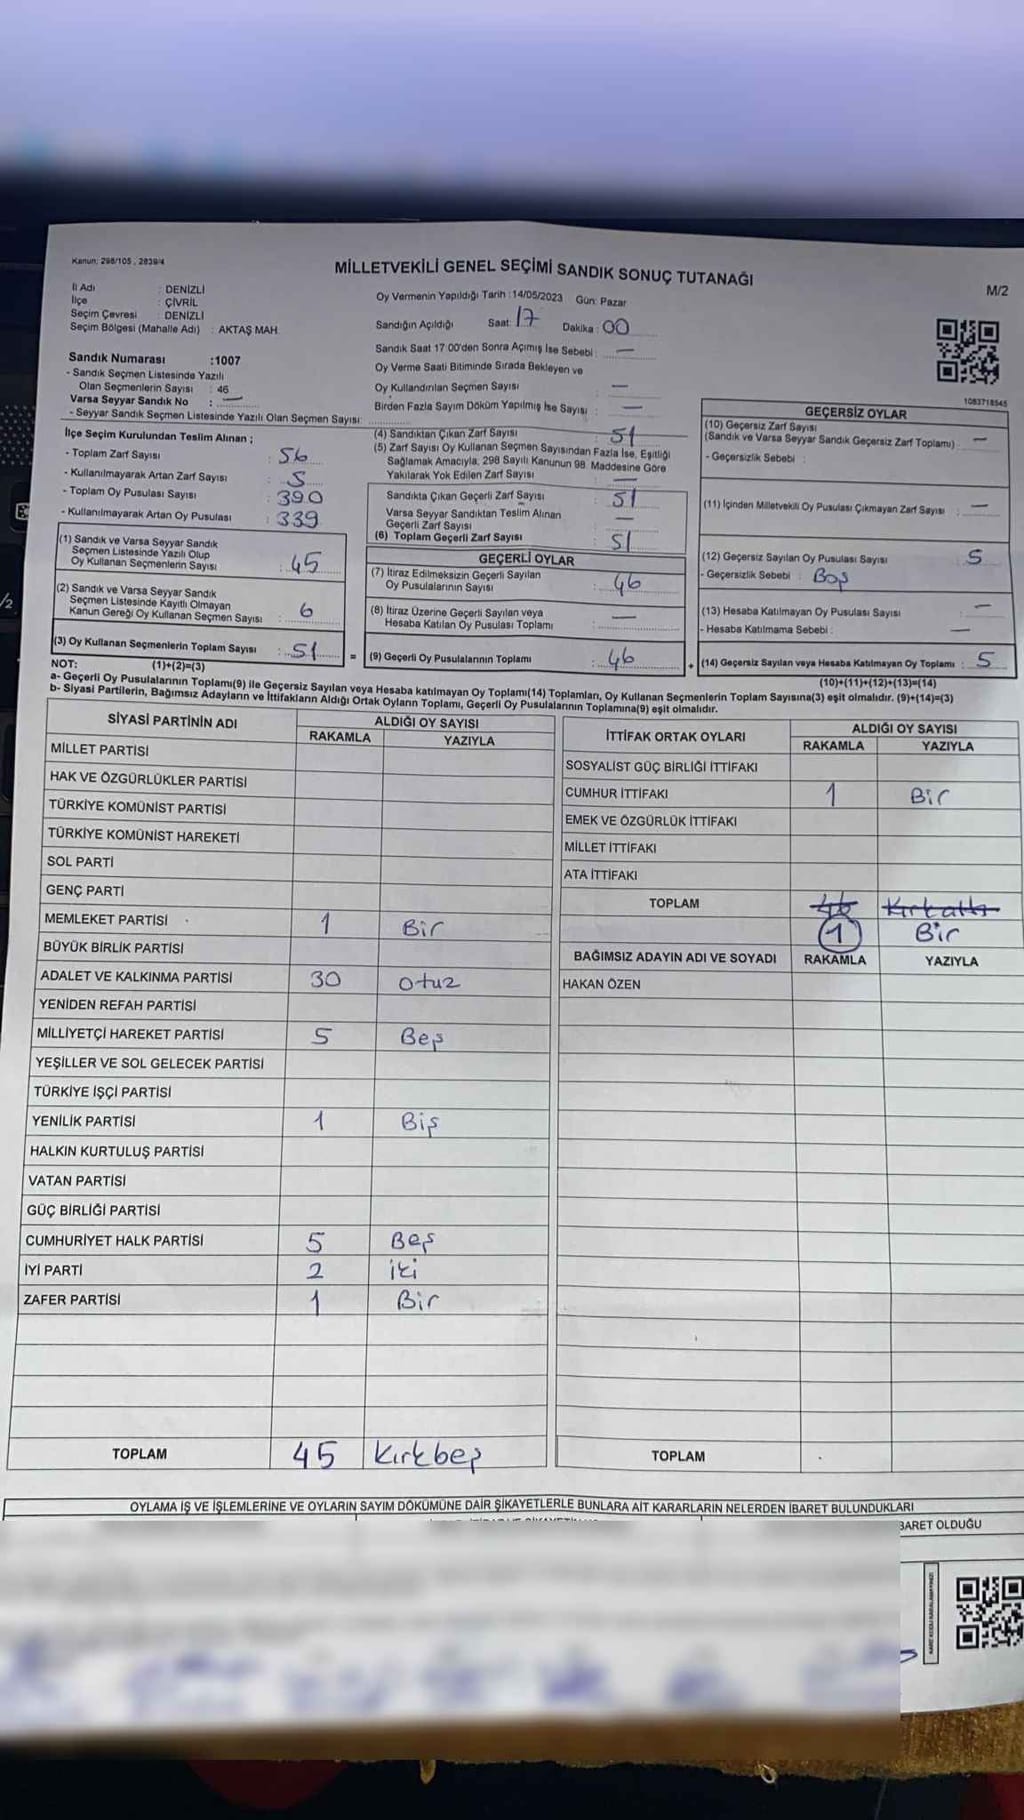 Kanun: 298/105 , 2839/4
MİLLETVEKİLİ GENEL SEÇİMİ SANDIK SONUÇ TUTANAĞI
M/2
İl Adı : DENİZLİ
İlçe : ÇİVRİL
Seçim Çevresi : DENİZLİ
Seçim Bölgesi (Mahalle Adı) : AKTAŞ MAH.
Sandık Numarası :1007
- Sandık Seçmen Listesinde Yazılı
Olan Seçmenlerin Sayısı : 46
Varsa Seyyar Sandık No : —
- Seyyar Sandık Seçmen Listesinde Yazılı Olan Seçmen Sayısı:
Oy Vermenin Yapıldığı Tarih :14/05/2023 Gün: Pazar
Sandığın Açıldığı Saat: 17 Dakika : 00
Sandık Saat 17:00'den Sonra Açımış İse Sebebi : —
Oy Verme Saati Bitiminde Sırada Bekleyen ve
Oy Kullandırılan Seçmen Sayısı : —
Birden Fazla Sayım Döküm Yapılmış İse Sayısı : —
1083718545
İlçe Seçim Kurulundan Teslim Alınan ;
- Toplam Zarf Sayısı : 56
- Kullanılmayarak Artan Zarf Sayısı : 5
- Toplam Oy Pusulası Sayısı : 390
- Kullanılmayarak Artan Oy Pusulası : 339
(1) Sandık ve Varsa Seyyar Sandık
Seçmen Listesinde Yazılı Olup
Oy Kullanan Seçmenlerin Sayısı : 45
(2) Sandık ve Varsa Seyyar Sandık
Seçmen Listesinde Kayıtlı Olmayan
Kanun Gereği Oy Kullanan Seçmen Sayısı : 6
(3) Oy Kullanan Seçmenlerin Toplam Sayısı : 51 =
(4) Sandıktan Çıkan Zarf Sayısı : 51
(5) Zarf Sayısı Oy Kullanan Seçmen Sayısından Fazla İse, Eşitliği
Sağlamak Amacıyla, 298 Sayılı Kanunun 98. Maddesine Göre
Yakılarak Yok Edilen Zarf Sayısı : —
Sandıkta Çıkan Geçerli Zarf Sayısı : 51
Varsa Seyyar Sandıktan Teslim Alınan
Geçerli Zarf Sayısı : —
(6) Toplam Geçerli Zarf Sayısı : 51
GEÇERLİ OYLAR
(7) İtiraz Edilmeksizin Geçerli Sayılan
Oy Pusulalarının Sayısı : 46
(8) İtiraz Üzerine Geçerli Sayılan veya
Hesaba Katılan Oy Pusulası Toplamı : —
(9) Geçerli Oy Pusulalarının Toplamı : 46 +
GEÇERSİZ OYLAR
(10) Geçersiz Zarf Sayısı
(Sandık ve Varsa Seyyar Sandık Geçersiz Zarf Toplamı) : —
- Geçersizlik Sebebi :
(11) İçinden Milletvekili Oy Pusulası Çıkmayan Zarf Sayısı : —
(12) Geçersiz Sayılan Oy Pusulası Sayısı : 5
- Geçersizlik Sebebi : Boş
(13) Hesaba Katılmayan Oy Pusulası Sayısı : —
- Hesaba Katılmama Sebebi : —
(14) Geçersiz Sayılan veya Hesaba Katılmayan Oy Toplamı : 5
NOT: (1)+(2)=(3)
(10)+(11)+(12)+(13)=(14)
a- Geçerli Oy Pusulalarının Toplamı(9) ile Geçersiz Sayılan veya Hesaba katılmayan Oy Toplamı(14) Toplamları, Oy Kullanan Seçmenlerin Toplam Sayısına(3) eşit olmalıdır. (9)+(14)=(3)
b- Siyasi Partilerin, Bağımsız Adayların ve İttifakların Aldığı Ortak Oyların Toplamı, Geçerli Oy Pusulalarının Toplamına(9) eşit olmalıdır.
SİYASİ PARTİNİN ADI ALDIĞI OY SAYISI
RAKAMLA YAZIYLA
MİLLET PARTİSİ
HAK VE ÖZGÜRLÜKLER PARTİSİ
TÜRKİYE KOMÜNİST PARTİSİ
TÜRKİYE KOMÜNİST HAREKETİ
SOL PARTİ
GENÇ PARTİ
MEMLEKET PARTİSİ 1 Bir
BÜYÜK BİRLİK PARTİSİ
ADALET VE KALKINMA PARTİSİ 30 otuz
YENİDEN REFAH PARTİSİ
MİLLİYETÇİ HAREKET PARTİSİ 5 Beş
YEŞİLLER VE SOL GELECEK PARTİSİ
TÜRKİYE İŞÇİ PARTİSİ
YENİLİK PARTİSİ 1 Biş
HALKIN KURTULUŞ PARTİSİ
VATAN PARTİSİ
GÜÇ BİRLİĞİ PARTİSİ
CUMHURİYET HALK PARTİSİ 5 Beş
İYİ PARTİ 2 iki
ZAFER PARTİSİ 1 Bir
TOPLAM 45 Kırkbeş
İTTİFAK ORTAK OYLARI ALDIĞI OY SAYISI
RAKAMLA YAZIYLA
SOSYALİST GÜÇ BİRLİĞİ İTTİFAKI
CUMHUR İTTİFAKI 1 Bir
EMEK VE ÖZGÜRLÜK İTTİFAKI
MİLLET İTTİFAKI
ATA İTTİFAKI
TOPLAM 46 Kırkaltı
1 Bir
BAĞIMSIZ ADAYIN ADI VE SOYADI RAKAMLA YAZIYLA
HAKAN ÖZEN
TOPLAM
OYLAMA İŞ VE İŞLEMLERİNE VE OYLARIN SAYIM DÖKÜMÜNE DAİR ŞİKAYETLERLE BUNLARA AİT KARARLARIN NELERDEN İBARET BULUNDUKLARI
BARET OLDUĞU